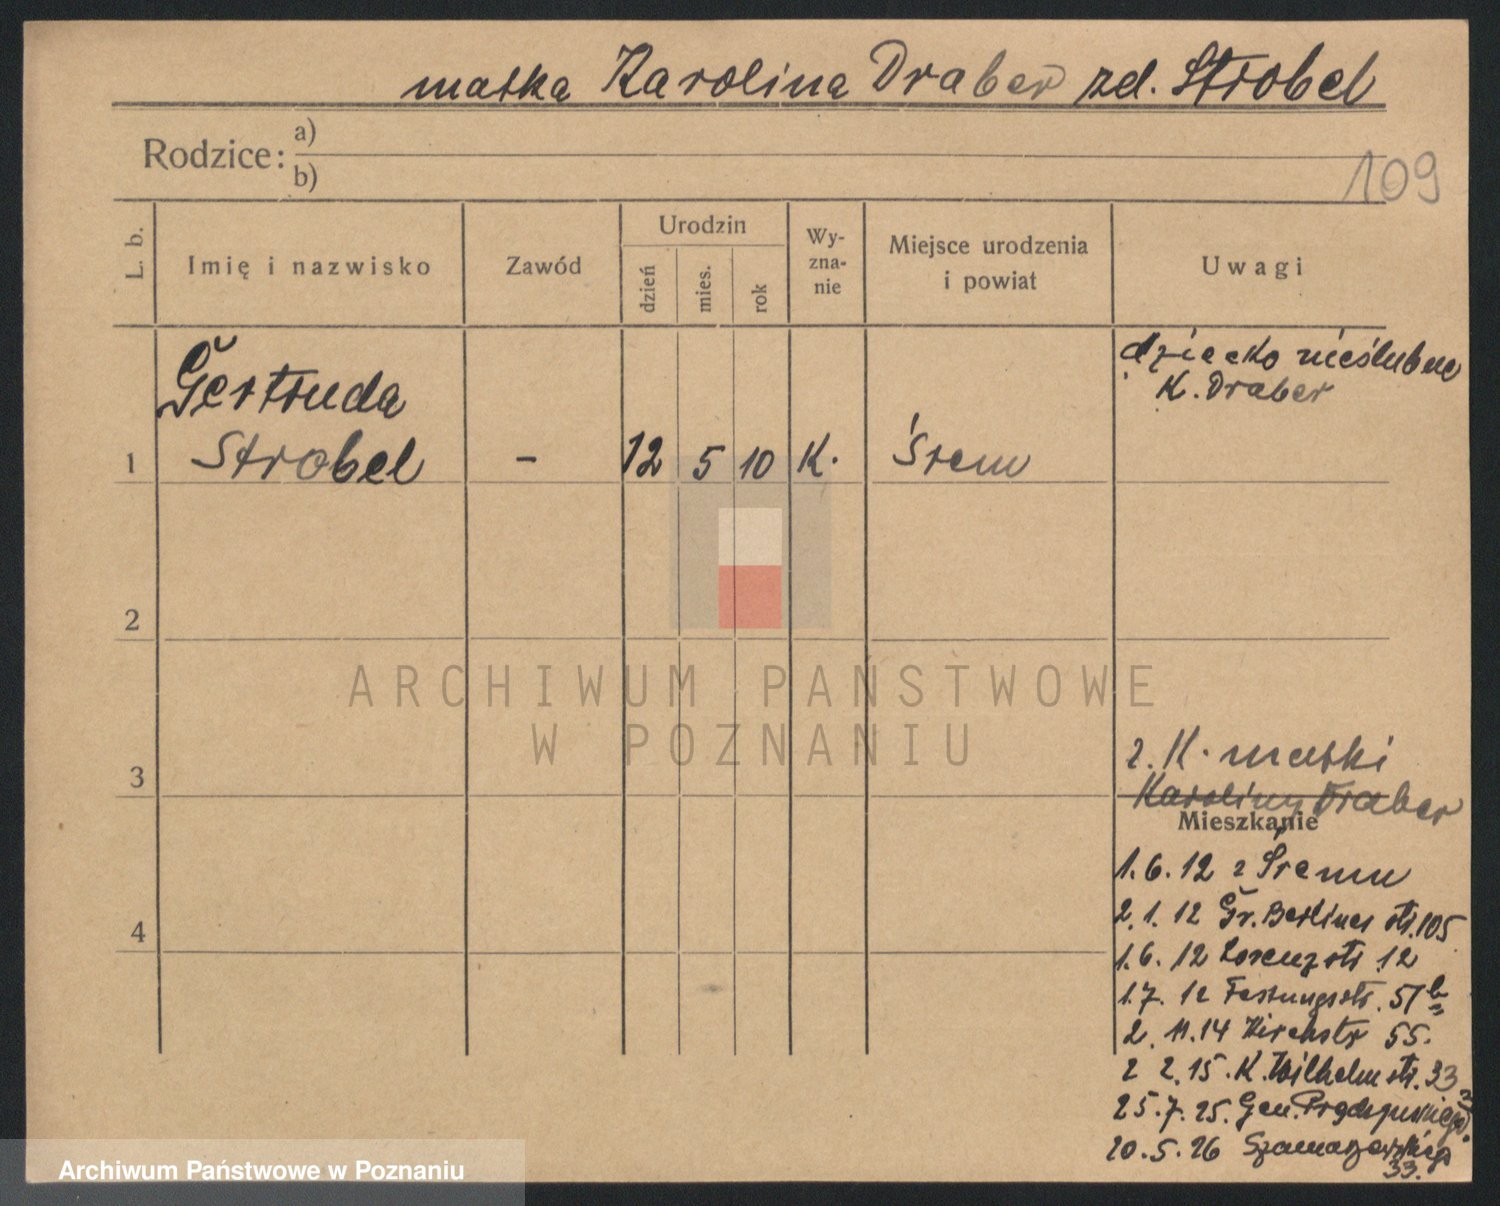 matka Karolina Draber zd. Strobel
Rodzice: a)
b)
109
L. b.
Imię i nazwisko
Zawód
Urodzin
dzień
mies.
rok
Wy-
zna-
nie
Miejsce urodzenia
i powiat
Uwagi
dziecko nieślubne
K. Draber
Gertruda
1 Strobel - 12 5 10 K. Śrem
2
ARCHIWUM PAŃSTWOWE
W POZNANIU
z. K. matki
3
Karoliny Draber
Mieszkanie
1.6.12 z Śremu
2.1.12 Gr. Berliner str. 105
4
1.6.12 Lorenzstr 12
1.7.12 Festungsstr. 51 b
2.11.14 Kirchstr 55.
2 2.15. K. Wilhelm str. 33
25.7.25. Gen. Prądzyńskiego
20.5.26 Szamarzewskiego
33.
Archiwum Państwowe w Poznaniu